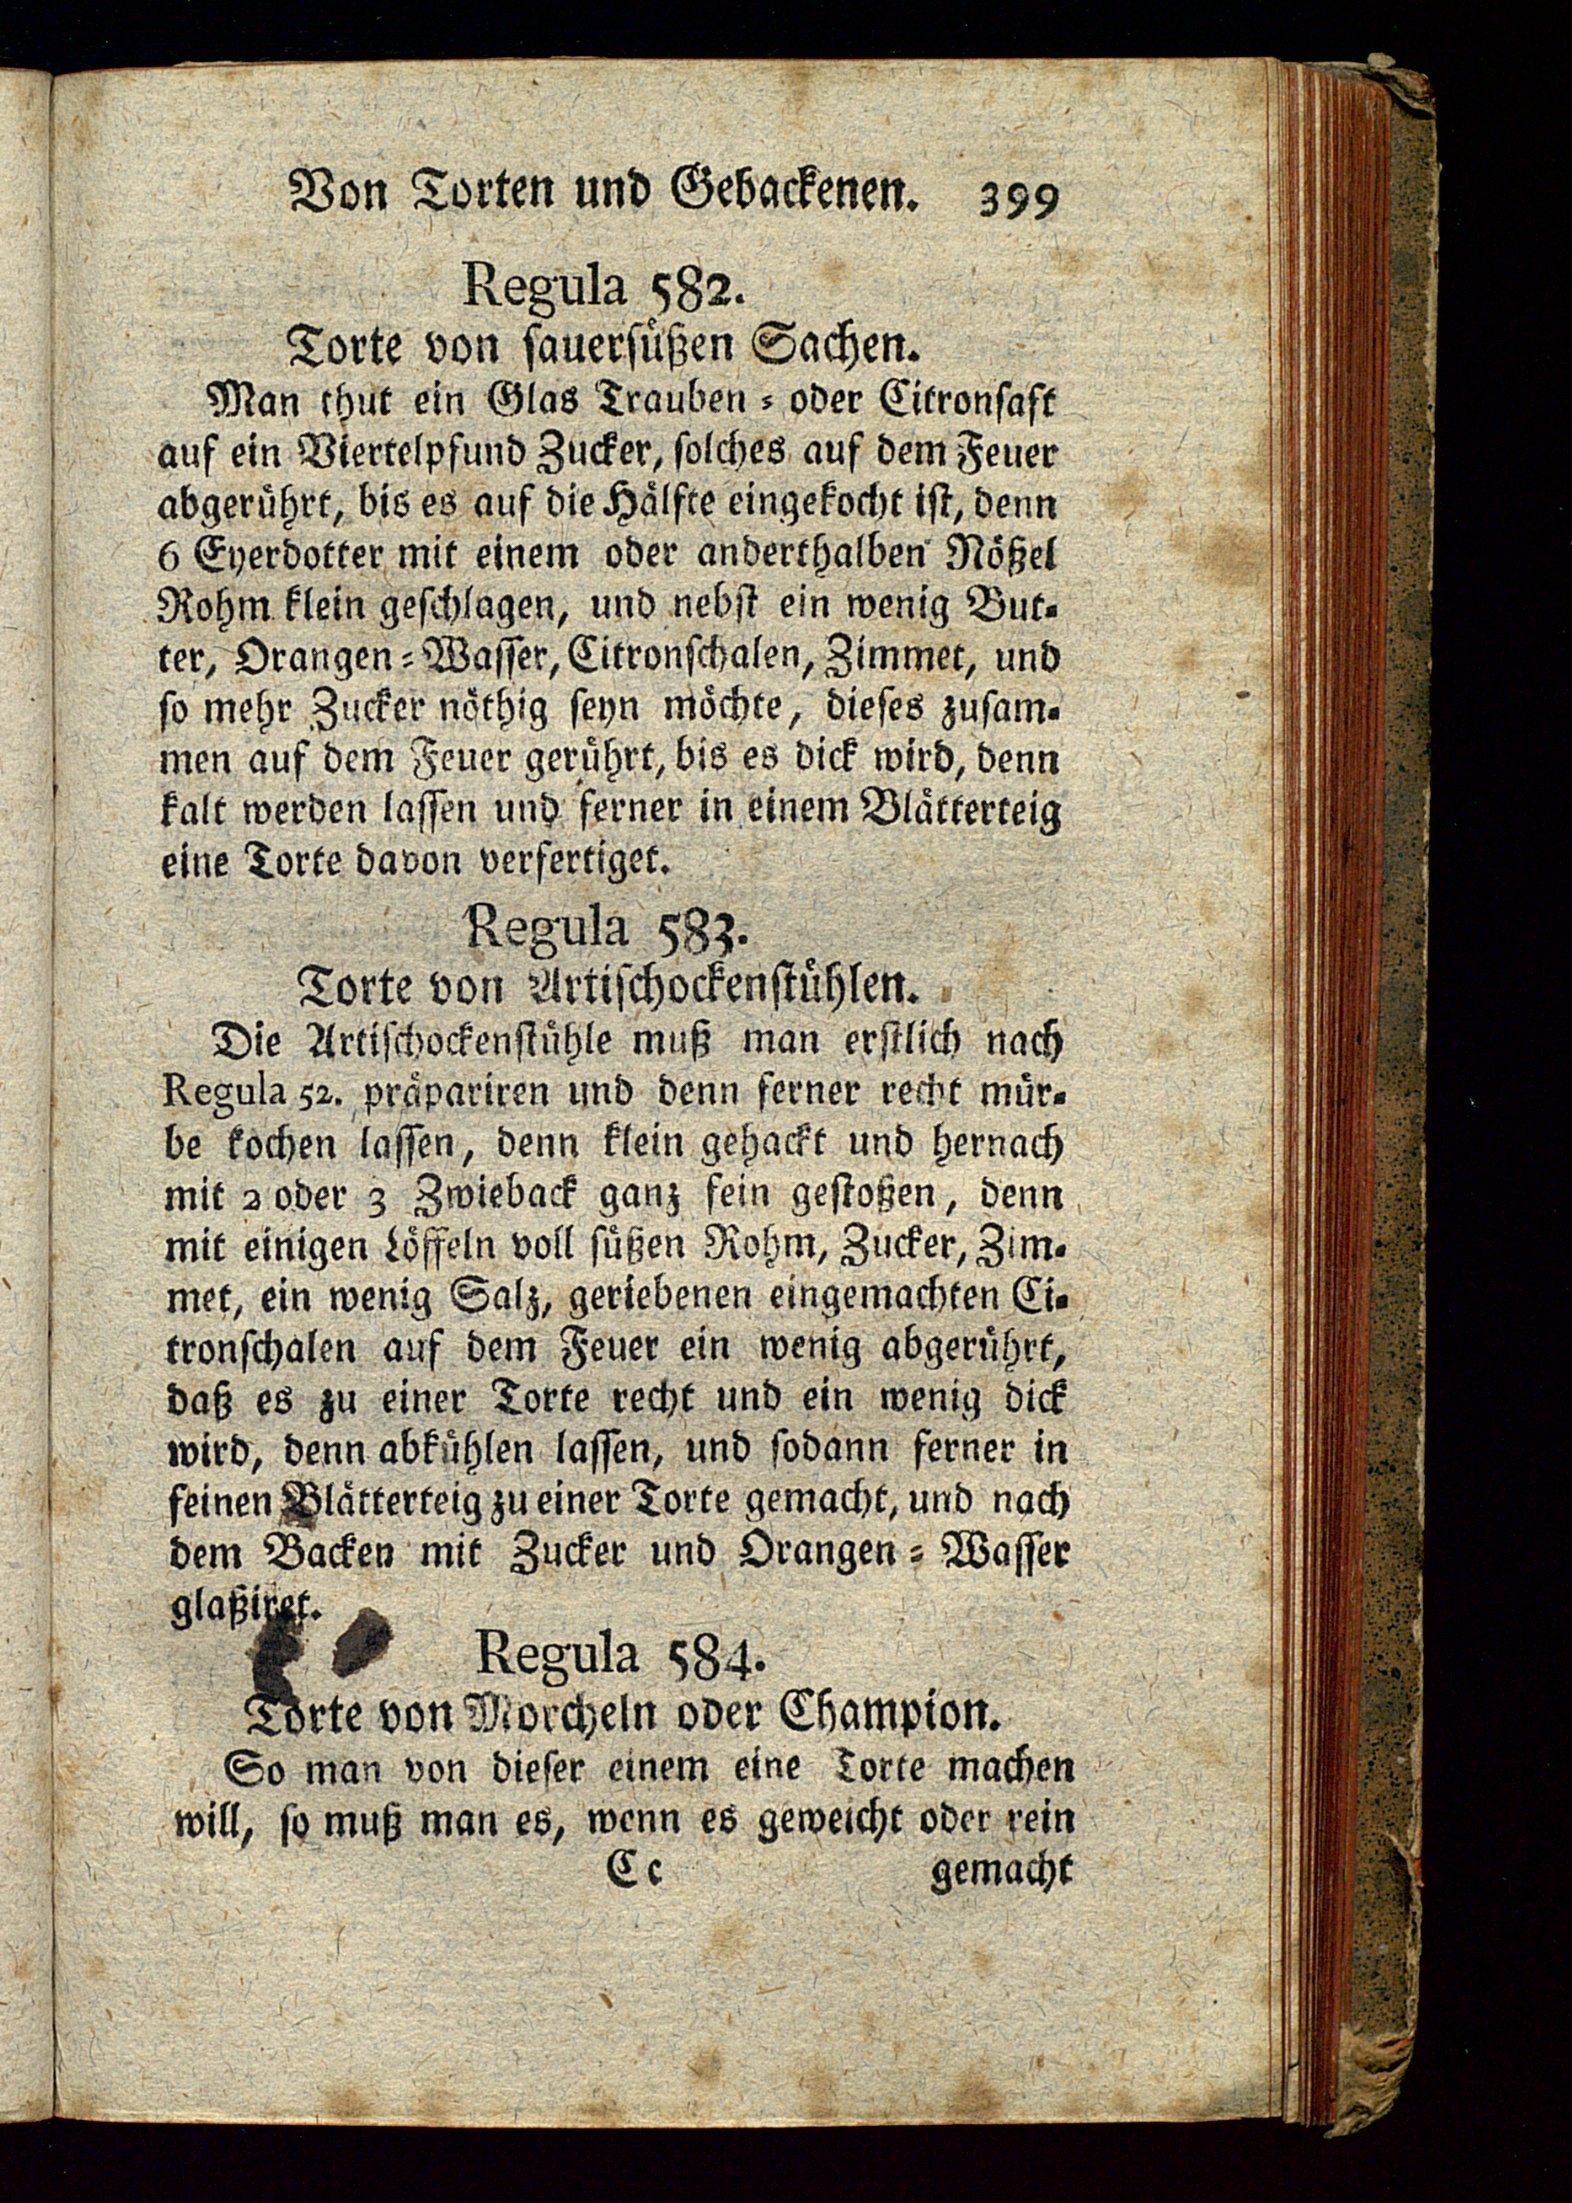 Von Torten und Gebackenen. 399
Regula 582.
Torte von sauersüßen Sachen.
Man thut ein Glas Trauben- oder Citronsaft
auf ein Viertelpfund Zucker, solches auf dem Feuer
abgerührt, bis es auf die Hälfte eingekocht ist, denn
6 Eyerdotter mit einem oder anderthalben Nößel
Rohm klein geschlagen, und nebst ein wenig But-
ter, Orangen-Wasser, Citronschalen, Zimmet, und
so mehr Zucker nöthig seyn möchte, dieses zusam-
men auf dem Feuer gerührt, bis es dick wird, denn
kalt werden lassen und ferner in einem Blätterteig
eine Torte davon verfertiget.
Regula 583.
Torte von Artischockenstühlen.
Die Artischockenstühle muß man erstlich nach
Regula 52. präpariren und denn ferner recht mür-
be kochen lassen, denn klein gehackt und hernach
mit 2 oder 3 Zwieback ganz fein gestoßen, denn
mit einigen Löffeln voll süßen Rohm, Zucker, Zim-
met, ein wenig Salz, geriebenen eingemachten Ci-
tronschalen auf dem Feuer ein wenig abgerührt,
daß es zu einer Torte recht und ein wenig dick
wird, denn abkühlen lassen, und sodann ferner in
feinen Blätterteig zu einer Torte gemacht, und nach
dem Backen mit Zucker und Orangen-Wasser
glaßiret.
Regula 584.
Torte von Morcheln oder Champion.
So man von dieser einem eine Torte machen
will, so muß man es, wenn es geweicht oder rein
Cc gemacht